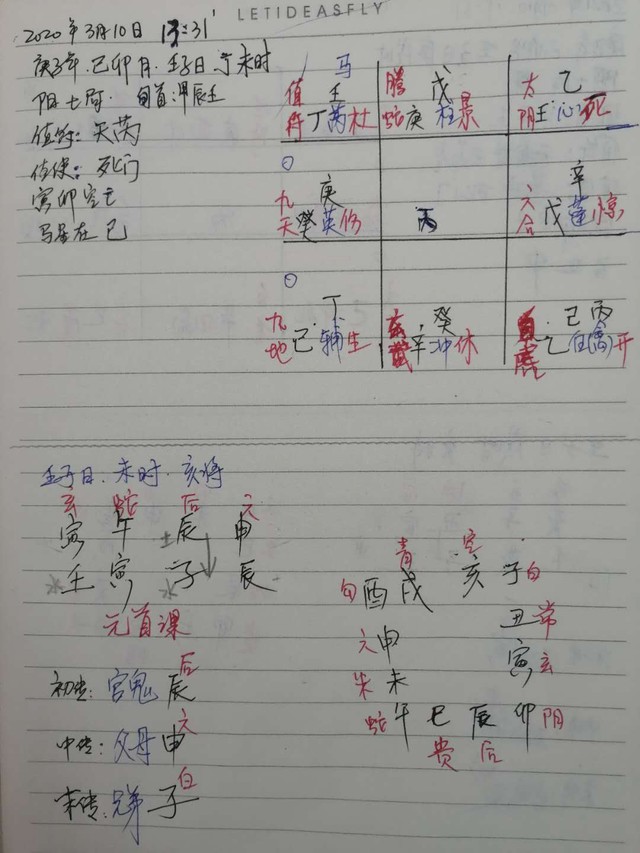 LETIDEASFLY
2020年3月10日 13:31'
庚子年.己卯月.壬子日.丁未时
阳七局. 旬首:甲辰壬
值符:天芮
值使:死门
寅卯空亡
马星在巳
马
值 壬 腾 戊 太 乙
符丁芮杜 蛇庚柱景 阴壬心死
○
九 庚 六 辛
天癸英伤 丙 合戊蓬惊
○
九 丁 玄 癸 己丙
地己辅生 武辛冲休 虎乙任(禽)开
壬子日.未时.亥将
玄 蛇 后 六
寅 午 辰 申
土
壬 寅 子 辰
水 水 水
元首课
初传:官鬼辰后
中传:父母申六
末传:兄弟子白
青 空
勾酉 戌 亥 子白
丑常
六申 寅玄
朱未
蛇午 巳 辰 卯阴
贵 后